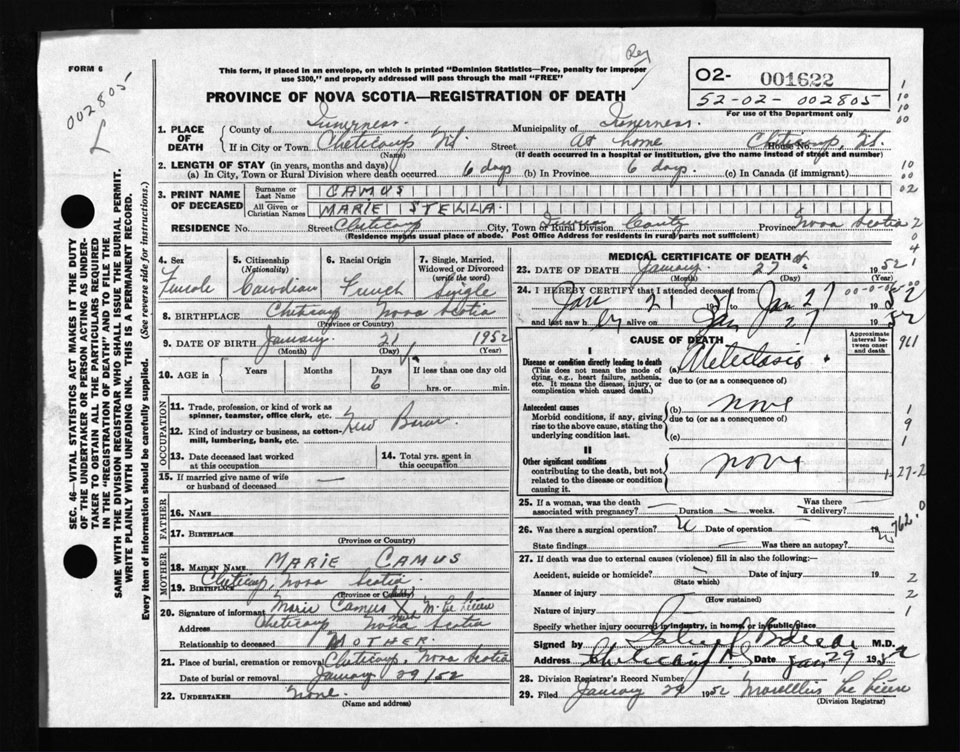 FORM 6
002805
L
Reg
This form, if placed in an envelope, on which is printed "Dominion Statistics—Free, penalty for improper
use $300," and properly addressed will pass through the mail "FREE"
PROVINCE OF NOVA SCOTIA—REGISTRATION OF DEATH
02- 001622
52-02- 002805
For use of the Department only
1. PLACE OF DEATH
County of Inverness. Municipality of Inverness.
If in City or Town Cheticamp N.S. Street At home House No. Cheticamp, N.S.
(Name) (If death occurred in a hospital or institution, give the name instead of street and number)
2. LENGTH OF STAY (in years, months and days)
(a) In City, Town or Rural Division where death occurred 6 days (b) In Province 6 days. (c) In Canada (if immigrant)
3. PRINT NAME OF DECEASED
Surname or Last Name CAMUS
All Given or Christian Names MARIE STELLA
RESIDENCE No. Street Cheticamp City, Town or Rural Division County Province Nova Scotia
(Residence means usual place of abode. Post Office Address for residents in rural parts not sufficient)
4. Sex
Female
5. Citizenship
(Nationality)
Canadian
6. Racial Origin
French
7. Single, Married, Widowed or Divorced
(write the word)
Single
8. BIRTHPLACE Cheticamp Nova Scotia
(Province or Country)
9. DATE OF BIRTH January 21 1952
(Month) (Day) (Year)
10. AGE in Years Months Days 6 If less than one day old
hrs. or min.
OCCUPATION
11. Trade, profession, or kind of work as
spinner, teamster, office clerk, etc. New Born
12. Kind of industry or business, as cotton-
mill, lumbering, bank, etc.
13. Date deceased last worked
at this occupation
14. Total yrs. spent in
this occupation
15. If married give name of wife
or husband of deceased —
FATHER
16. NAME
17. BIRTHPLACE
(Province or Country)
MOTHER
18. MAIDEN NAME MARIE CAMUS
19. BIRTHPLACE Cheticamp, Nova Scotia
(Province or Country)
20. Signature of informant Marie Camus X M. Le Lievre
Address Cheticamp Nova Scotia
Relationship to deceased MOTHER.
21. Place of burial, cremation or removal Cheticamp, Nova Scotia
Date of burial or removal January 29/52
22. UNDERTAKER None.
(Name and address)
MEDICAL CERTIFICATE OF DEATH
23. DATE OF DEATH January 27 1952
(Month) (Day)
24. I HEREBY CERTIFY that I attended deceased from:
Jan 21 to Jan 27 1952
and last saw h er alive on Jan 27 1952
CAUSE OF DEATH
Approximate interval between onset and death
I
Disease or condition directly leading to death
(This does not mean the mode of
dying, e.g., heart failure, asthenia,
etc. It means the disease, injury, or
complication which caused death.)
(a) Atelectasis
due to (or as a consequence of)
Antecedent causes
Morbid conditions, if any, giving
rise to the above cause, stating the
underlying condition last.
(b) none
due to (or as a consequence of)
(c)
II
Other significant conditions
contributing to the death, but not
related to the disease or condition
causing it.
none
25. If a woman, was the death
associated with pregnancy? — Duration — weeks. Was there
a delivery?
26. Was there a surgical operation? Date of operation 19
State findings Was there an autopsy?
27. If death was due to external causes (violence) fill in also the following:
Accident, suicide or homicide? Date of injury 19
(State which)
Manner of injury
(How sustained)
Nature of injury
Specify whether injury occurred in industry, in home, or in public place
Signed by M.D.
Address Cheticamp N.S. Date Jan 29 1952
28. Division Registrar's Record Number
29. Filed January 29 1952 Marcellin Le Lievre
(Division Registrar)
SEC. 46—VITAL STATISTICS ACT MAKES IT THE DUTY
OF THE UNDERTAKER OR PERSON ACTING AS UNDER-
TAKER TO OBTAIN ALL THE PARTICULARS REQUIRED
IN THE "REGISTRATION OF DEATH" AND TO FILE THE
SAME WITH THE DIVISION REGISTRAR WHO SHALL ISSUE THE BURIAL PERMIT.
WRITE PLAINLY WITH UNFADING INK. THIS IS A PERMANENT RECORD.
Every item of information should be carefully supplied. (See reverse side for instructions.)
961
1-27-2
762.0